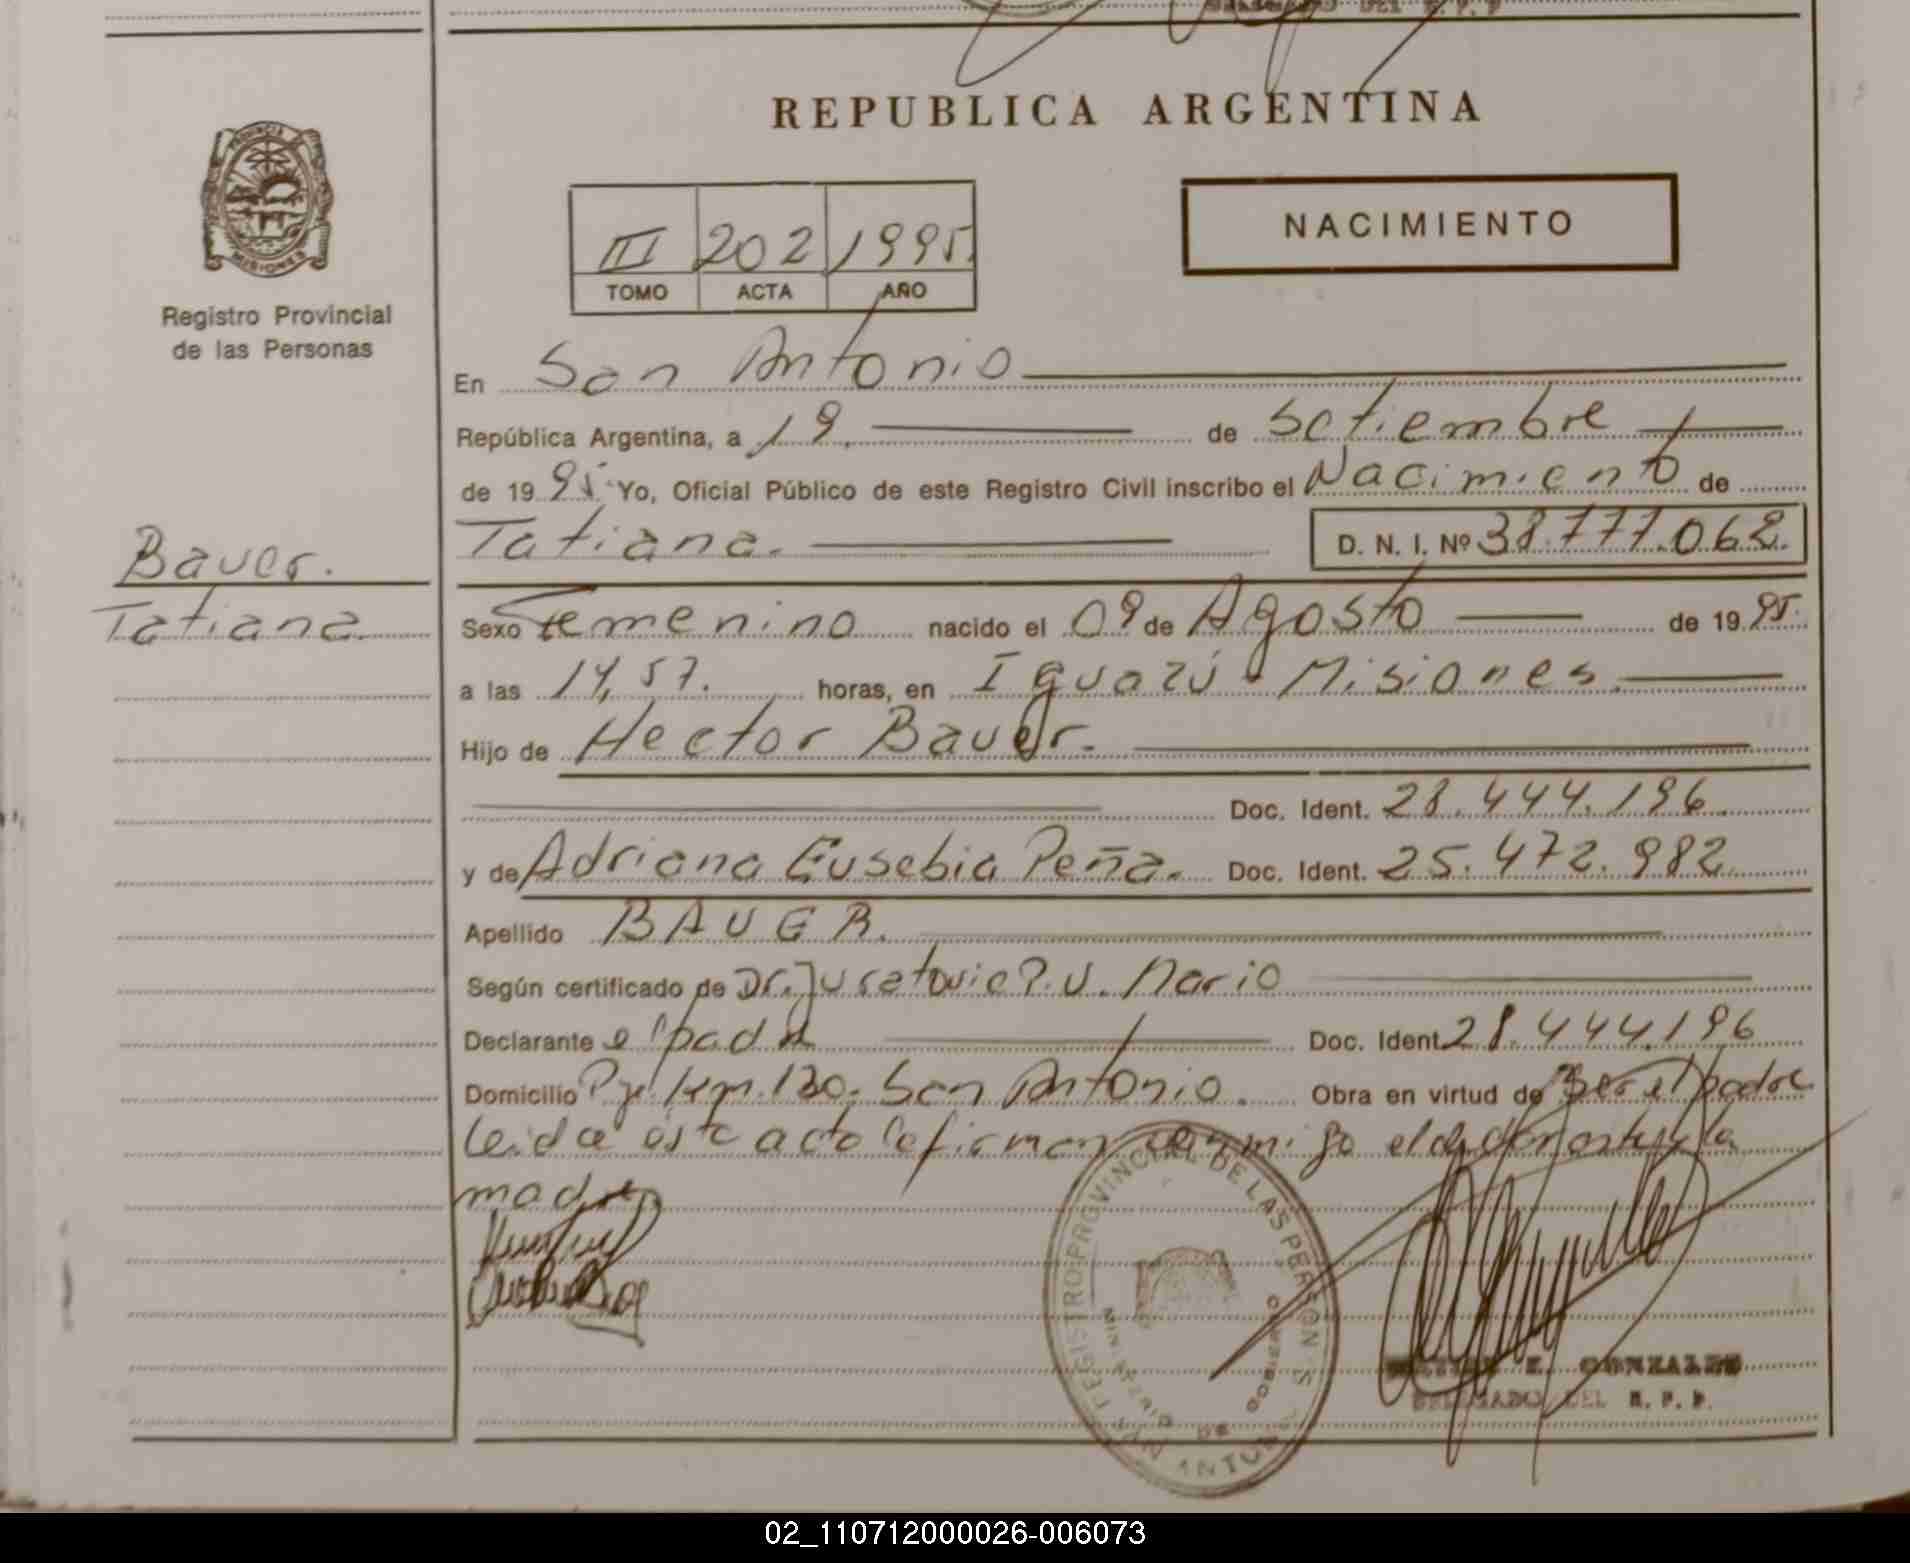 REPUBLICA ARGENTINA
PROVINCIA
MISIONES
Registro Provincial
de las Personas
III 202 1995
TOMO ACTA AÑO
NACIMIENTO
En San Antonio
República Argentina, a 19. de Setiembre
de 19 95 Yo, Oficial Público de este Registro Civil inscribo el Nacimiento de
Bauer.
Tatiana. D. N. I. Nº 38.777.062.
Tatiana
Sexo Femenino nacido el 09 de Agosto de 19 95.
a las 14,57. horas, en Iguazú - Misiones.
Hijo de Hector Bauer.
Doc. Ident. 28.444.196.
y de Adriana Eusebia Peña. Doc. Ident. 25.472.982
Apellido BAUER.
Según certificado de Dr. Mario
Declarante el padre Doc. Ident. 28.444.196
Domicilio Pje. Km. 130. San Antonio. Obra en virtud de Ser el padre
Leida este acta la firman conmigo el declarante y la
madre
REGISTRO PROVINCIAL DE LAS PERSONAS
MINISTERIO DE GOBIERNO
E. GONZALEZ
DELEGADO DEL R. P. P.
02_110712000026-006073